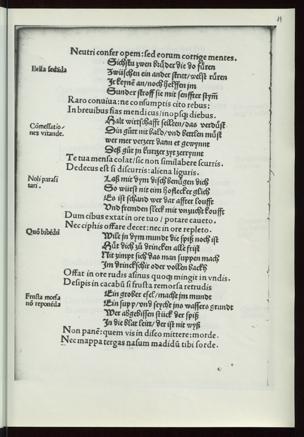 Neutri confer opem: sed eorum corrige mentes.
Bella sedida
Sichstu zwen brüder die do füren
Zwischen ein ander stritt/ welst rüren
Je keynē an/noch helffen jm
Sunder stroff sie mit senffter stym̄
Raro conuiua: ne consumptis cito rebus:
In breuibus fias mendicus/inopsq̄ diebus.
Cōmessatio-
nes vitande.
Halt wirtschafft selten/das verdüst
Din gůt nit bald/vnd betlen můst
wer mer verzert dann er gewynnt
Deß gůt jn kurtzer zyt zerrynnt
Te tua mensa colat/sic non similabere scurris.
Dedecus est si discurris: aliena liguris.
Noli parasi
tari.
Laß mit dym disch benügen dich
So würst nit ein hoflecker glich
Es ist schand wer dar affter loufft
Vnd frembden fleck mit vnzucht koufft
Dum cibus extat in ore tuo/potare caueto.
Nec ciphis offare decet: nec in ore repleto.
Quō bibēdū
Wile jn dym munde die spiß noch ist
Hůt dich zů drincken alle frist
Nit zimpt sich das man suppen mach
Jm drinckschir oder vollen backē
Offat in ore rudis asinus quoq̄ mingit in vndis.
Despis in cacabū si frusta remorsa retrudis
Frusta morsa
nō reponēda
Ein grober esel/machē jm mundt
Ein supp/vnd seyche jno wassers grundt
Wer abgebissen stück der spiß
In die blat leitt/der ist nit wyß
Non panē: quem vis in disco mittere: morde.
Nec mappa tergas nasum madidū tibi sorde.